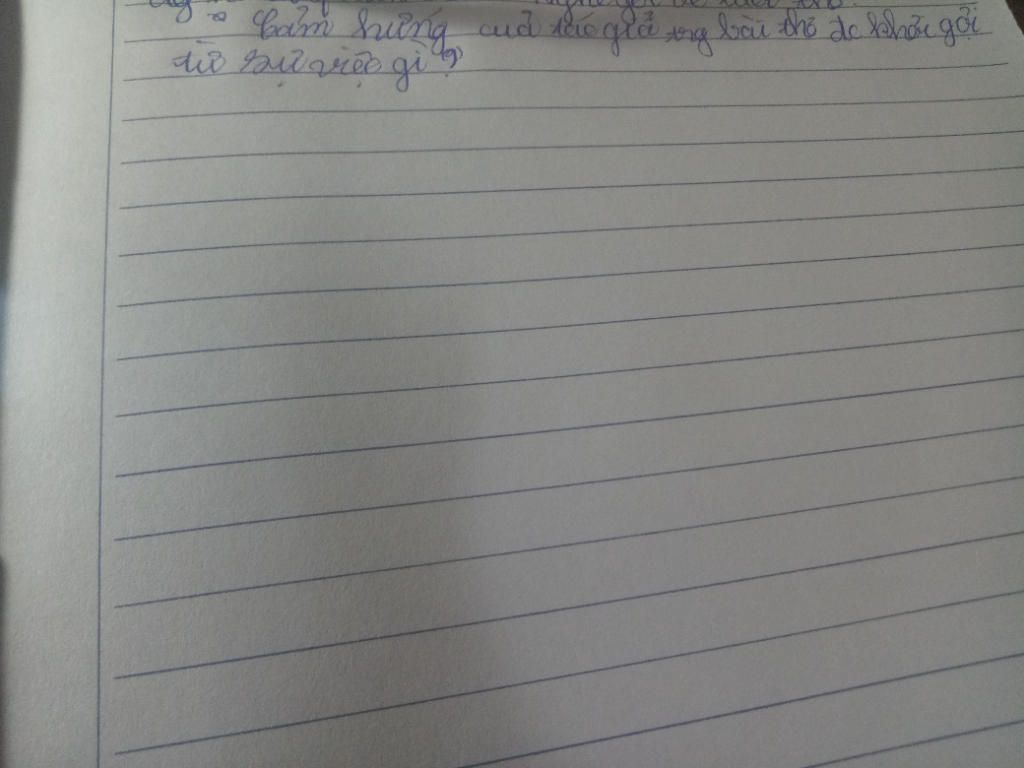 Cảm hứng của tác giả trg bài thơ đc khơi gợi
từ sự việc gì?